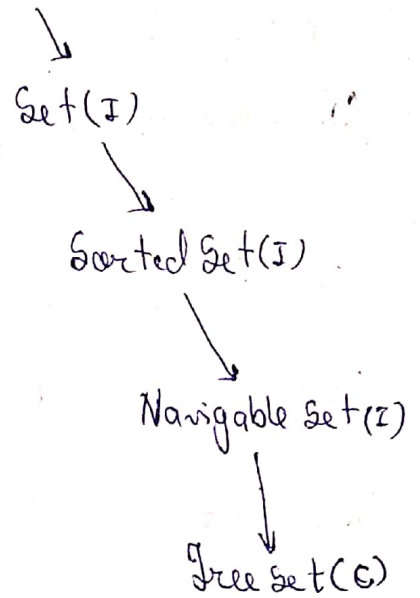 Set(I)
Sorted Set(I)
Navigable Set(I)
Tree Set(C)